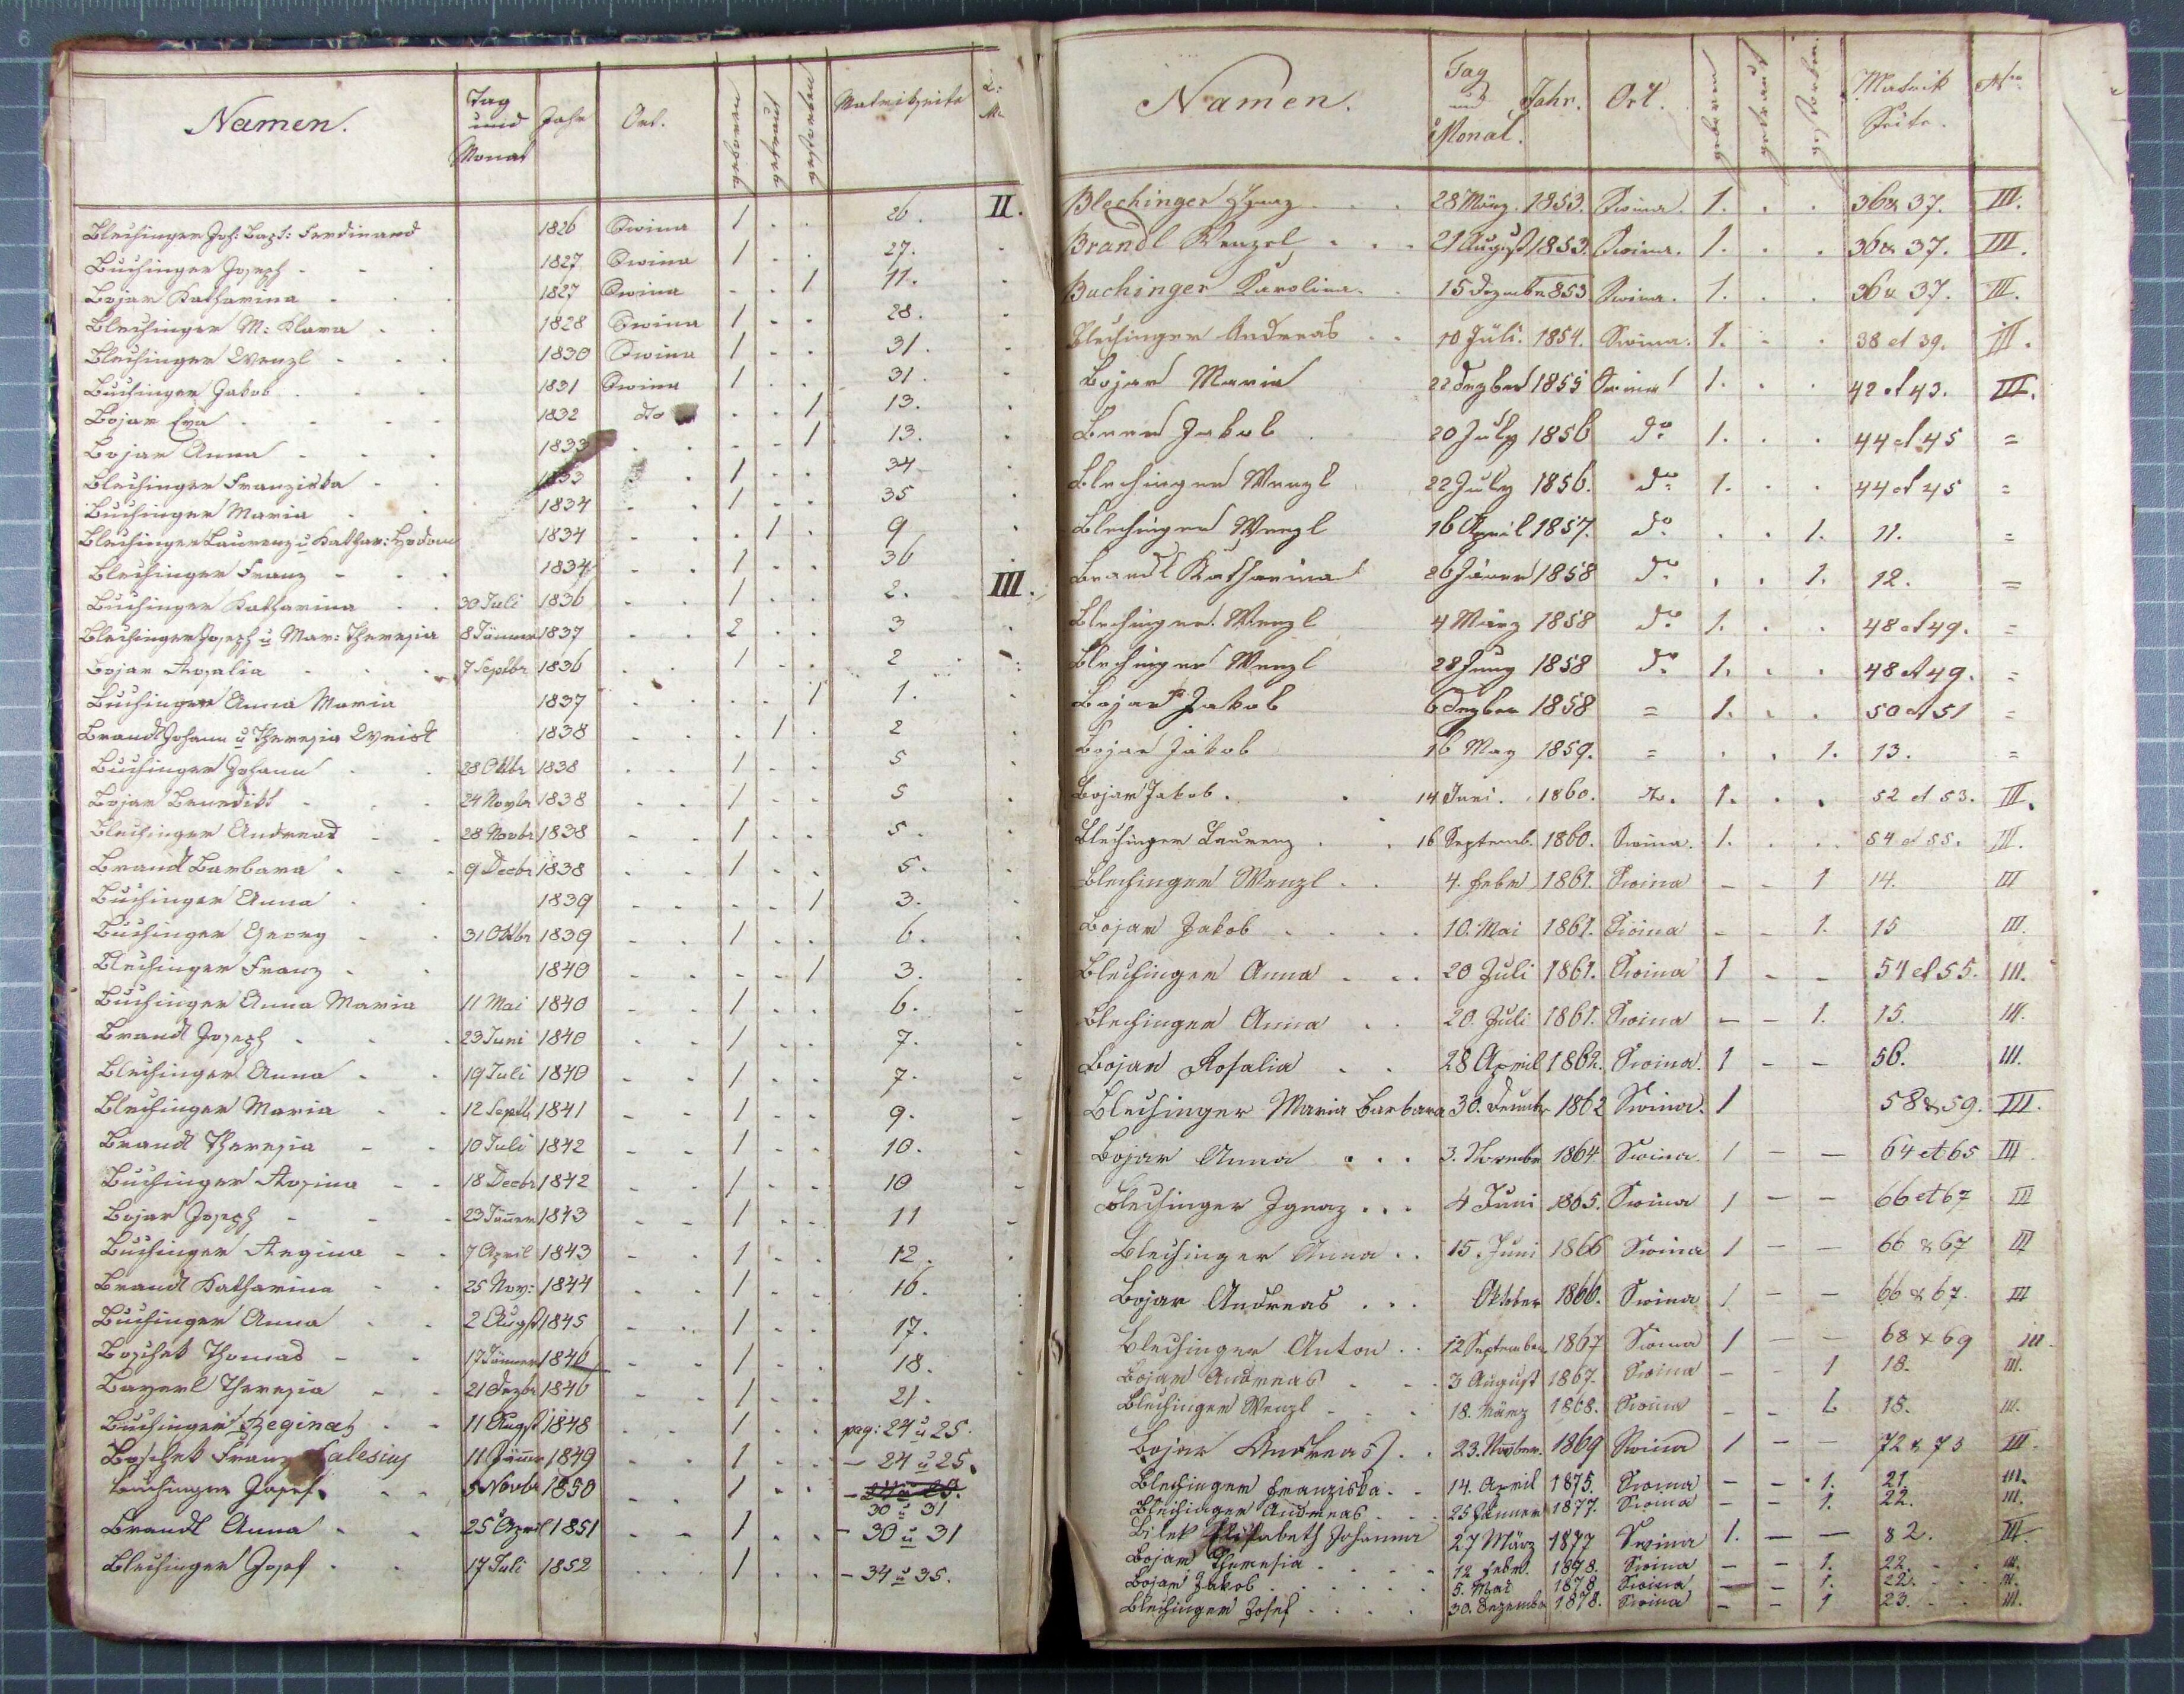 Namen. Tag und Monat Jahr Ort. geboren getraut gestorben Matrikseite L: Nr.
Blechinger Joh: Bapt: Ferdinand 1826 Swina 1 . . 26. II.
Buchinger Joseph - - . 1827 Swina 1 . . 27. .
Bojar Katharina . . . 1827 Swina . . 1 11. .
Blechinger M: Klara . . 1828 Swina 1 - . 28. .
Blechinger Wenzl - - . 1830 Swina 1 . . 31. .
Buchinger Jakob . . . 1831 Swina 1 . . 31. -
Bojar Eva . . . 1832 dto . . 1 13. .
Bojar Anna - - . 1833 . . - - 1 13. .
Blechinger Franziska - . 1833 . 1 . . 34 .
Buchinger Maria - . 1834 - . 1 - . 35 .
Blechinger Laurenz u Kathar: 1834 . . . 1 . 9 .
Blechinger Franz - . . 1834 - . 1 . . 36 .
Buchinger Katharina . . 30 Juli 1836 . . 1 . . 2. III.
Blechinger Joseph u Mar: Theresia 8 Jänner 1837 . . 2 . . 3 .
Bojar Rosalia - - . 7 Septbr 1836 . . 1 . . 2 .
Buchinger Anna Maria 1837 . . . . 1 1. .
Brandl Johann u Theresia Weist 1838 . . . 1 . 2 .
Buchinger Johann . . 28 Oktbr 1838 . . 1 . . 5 .
Bojar Benedikt - . . 24 Novbr 1838 - . 1 - . 5 .
Blechinger Andreas - . 28 Novbr 1838 - . 1 . . 5 . .
Brandl Barbara . . . 9 Decbr 1838 . . 1 . . 5. .
Buchinger Anna . . 1839 - . - . 1 3. .
Buchinger Georg - . 31 Oktbr 1839 - . 1 . . 6. .
Blechinger Franz - . 1840 - . - - 1 3. .
Buchinger Anna Maria 11 Mai 1840 . . 1 . . 6. -
Brandl Joseph - . . 23 Juni 1840 . . 1 . . 7. .
Blechinger Anna - . 19 Juli 1840 - . 1 - . 7. -
Blechinger Maria - . 12 Septb 1841 - - 1 - . 9. -
Brandl Theresia - - 10 Juli 1842 - - 1 - . 10. -
Buchinger Rosina - - 18 Decbr 1842 - . 1 - - 10 -
Bojar Joseph - - . 23 Jäner 1843 - - 1 - - 11 -
Buchinger Regina - - 7 April 1843 - . 1 - . 12. .
Brandl Katharina - . 25 Nov: 1844 . . 1 . . 16. .
Buchinger Anna . . 2 Augst 1845 - . 1 - . 17. .
Boschek Thomas - . 17 Jänner 1846 - . 1 - . 18. .
Bayerl Theresia - . 21 Dezbr 1846 - . 1 - . 21. .
Buchinger Regina - . 11 Augst 1848 . . 1 . . pag: 24 u 25.
Boschek Franz Salesius 11 Jänner 1849 . . 1 . . - 24 u 25.
Buchinger Josef. - . 5 Novbr 1850 - . 1 . .
30 u 31
Brandl Anna . . 25 April 1851 - - 1 . . - 30 u 31
Blechinger Josef . . 17 Juli 1852 . . 1 . . - 34 u 35.
Namen. Tag und Monat. Jahr. Ort. geboren getraut gestorben. Matrik Seite. Nro
Blechinger Ignaz . . . 28 März. 1853. Swina. 1. . . 36 & 37. III.
Brandl Wenzel . . . 21 August 1853. Swina. 1. . . 36 & 37. III.
Buchinger Karolina. . 15 Dezember 853 Swina. 1. . . 36 & 37. III.
Blechinger Andreas . . 10 Juli. 1854. Swina. 1. - . 38 et 39. III.
Bojar Maria 22 Dezber 1855 Swina 1. . . 42 et 43. III.
Beer Jakob . 20 July 1856 do 1. . . 44 et 45 =
Blechinger Wenzl 22 July 1856. do 1. . . 44 et 45 =
Blechinger Wenzl 16 April 1857. do . . 1. 11. =
Brandl Katharina 26 Jäner 1858 do . . 1. 12. =
Blechinger Wenzl 4 März 1858 do 1. . . 48 et 49. =
Blechinger Wenzl 28 Juny 1858 do 1. . . 48 et 49. =
Bojar Jakob 6 Dezber 1858 = 1. . . 50 et 51 =
Bojar Jakob 16 May 1859. = . . 1. 13. =
Bojar Jakob. . 14 Juni. 1860. do. 1. . . 52 et 53. III.
Blechinger Laurenz . . 16 Septemb. 1860. Swina. 1. . . 54 et 55. III.
Blechinger Wenzl. . 4. Febr 1861. Swina - - 1 14. III
Bojar Jakob . . . . 10. Mai 1861. Swina - - 1. 15 III.
Blechinger Anna . . . 20 Juli 1861. Swina 1 - - 54 et 55. III.
Blechinger Anna . . 20. Juli 1861. Swina - - 1. 15. III.
Bojar Rosalia . . 28 April 1862. Swina. 1 - - 56. III.
Blechinger Maria Barbara 30. Dezmbr 1862 Swina. 1 58 & 59. III.
Bojar Anna . . . 3. Novembr 1864 Swina. 1 - - 64 et 65 III
Blechinger Ignaz . . . 4 Juni 1865. Swina 1 - - 66 et 67 III
Blechinger Anna . . 15. Juni 1866 Swina 1 - - 66 & 67 III
Bojar Andreas . . . Oktober 1866. Swina 1 - - 66 & 67. III
Blechinger Anton . . 12 September 1867 Swina 1 - - 68 & 69 III.
Bojar Andreas . . . 3 August 1867. Swina - - 1 18. III.
Blechinger Wenzl . . . 18. März 1868. Swina - - 1. 18. III.
Bojar Andreas . . 23. Novber. 1869 Swina 1 - - 72 & 73 III.
Blechinger Franziska . . 14. April 1875. Swina - - 1. 21. III.
Blechinger Andreas . . . 25 Jänner 1877. Swina - - 1. 22. III.
Bilek Elisabeth Johanna 27 März 1877 Swina 1. - - 82. III.
Bojar Theresia . . . . 12 Febr. 1878. Swina - - 1. 22. . . III.
Bojar Jakob . . . . . 5. Mai 1878 Swina - - 1. 22. . . III.
Blechinger Josef . . . . 30. Dezember 1878. Swina - - 1 23. . . III.